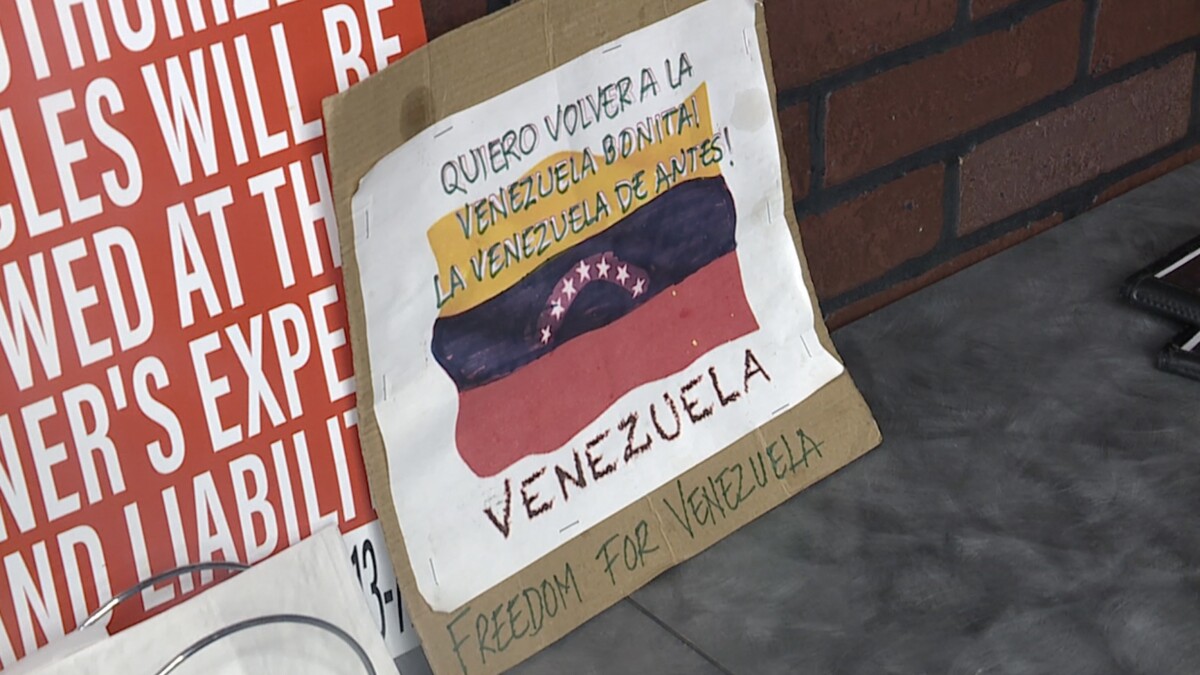 WILL BE
WED AT
EXPE
AND LIABILIT
QUIERO VOLVER A LA
VENEZUELA BONITA!
LA VENEZUELA DE ANTES!
VENEZUELA
FREEDOM FOR VENEZUELA